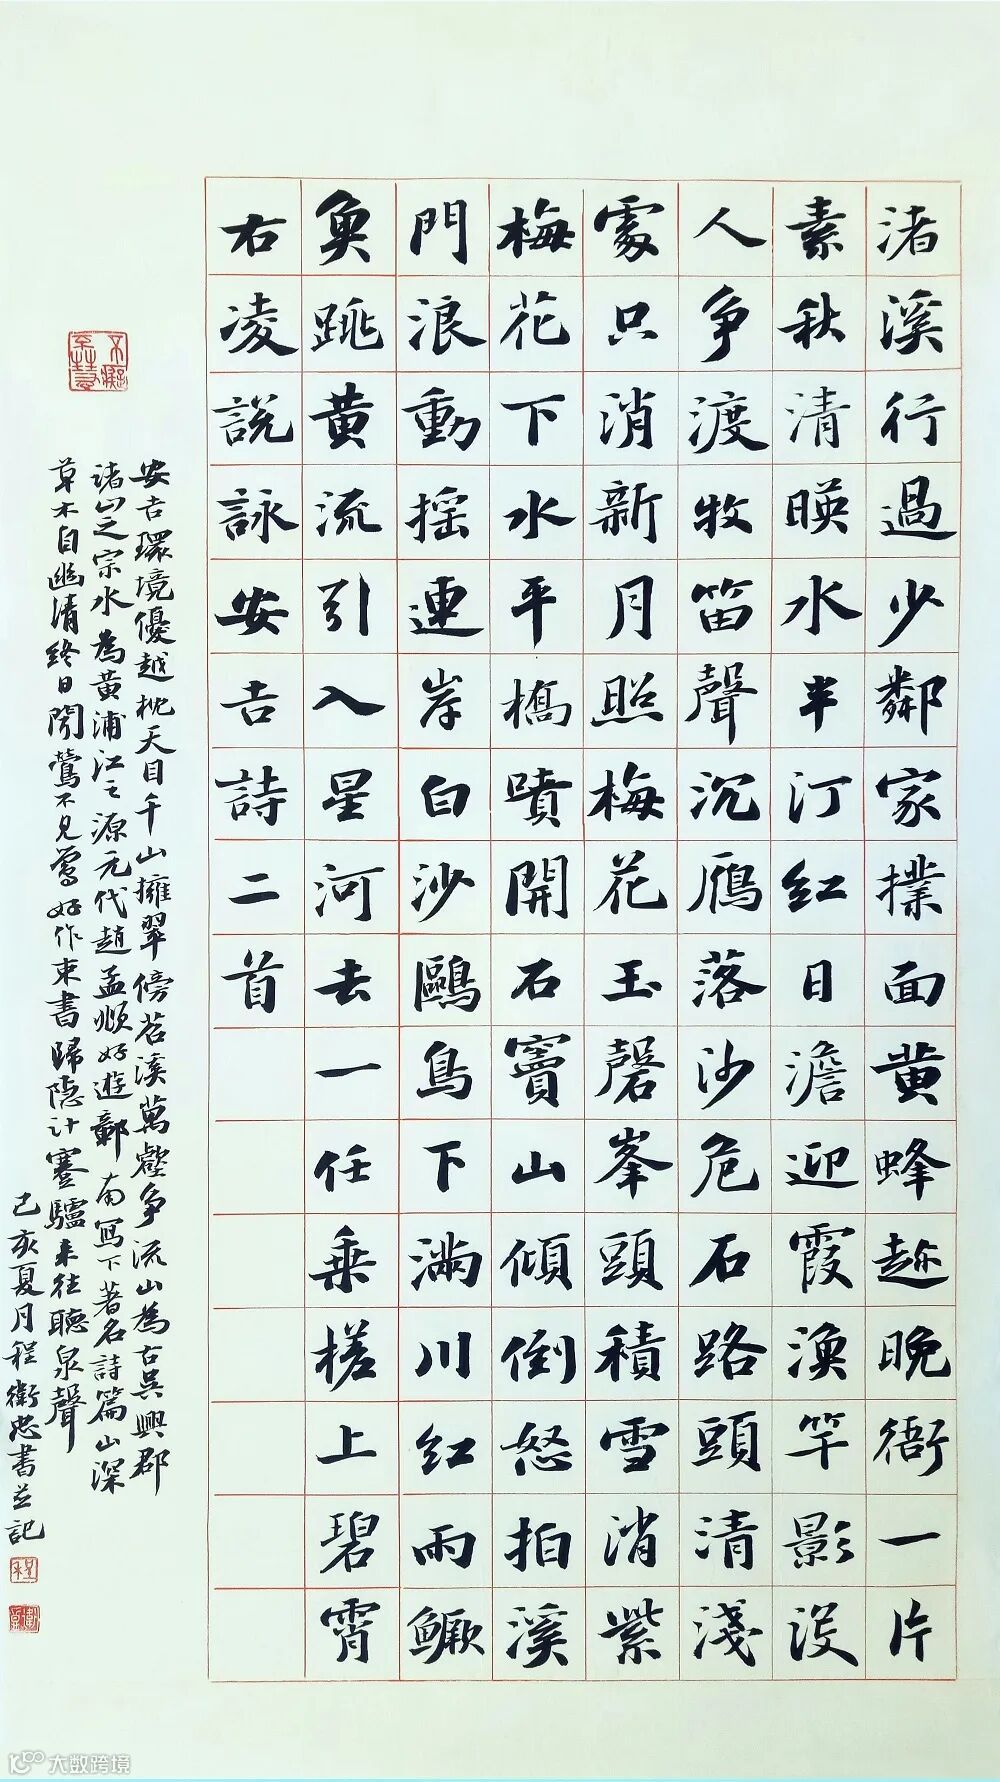 渚溪行過少鄰家撲面黄蜂趂晚衙一片
素秋清暎水半汀紅日澹迎霞漁竿影沒
人争渡牧笛聲沉鴈落沙危石路頭清淺
處只消新月照梅花玉磬峯頭積雪消紫
梅花下水平橋嘖開石竇山傾倒怒拍溪
門浪動揺連岸白沙鷗鳥下滿川紅雨鱖
魚跳黄流引入星河去一任乗槎上碧霄
右凌説詠安吉詩二首
安吉環境優越枕天目千山擁翠傍苕溪萬壑争流山為古吴興郡
諸山之宗水為黄浦江之源元代趙孟頫好遊鄣南寫下著名詩篇山深
草木自幽清終日聞鶯不見鶯好作束書歸隐计蹇驢来往聽泉聲
己亥夏月程衛忠書並記
程
大数跨境